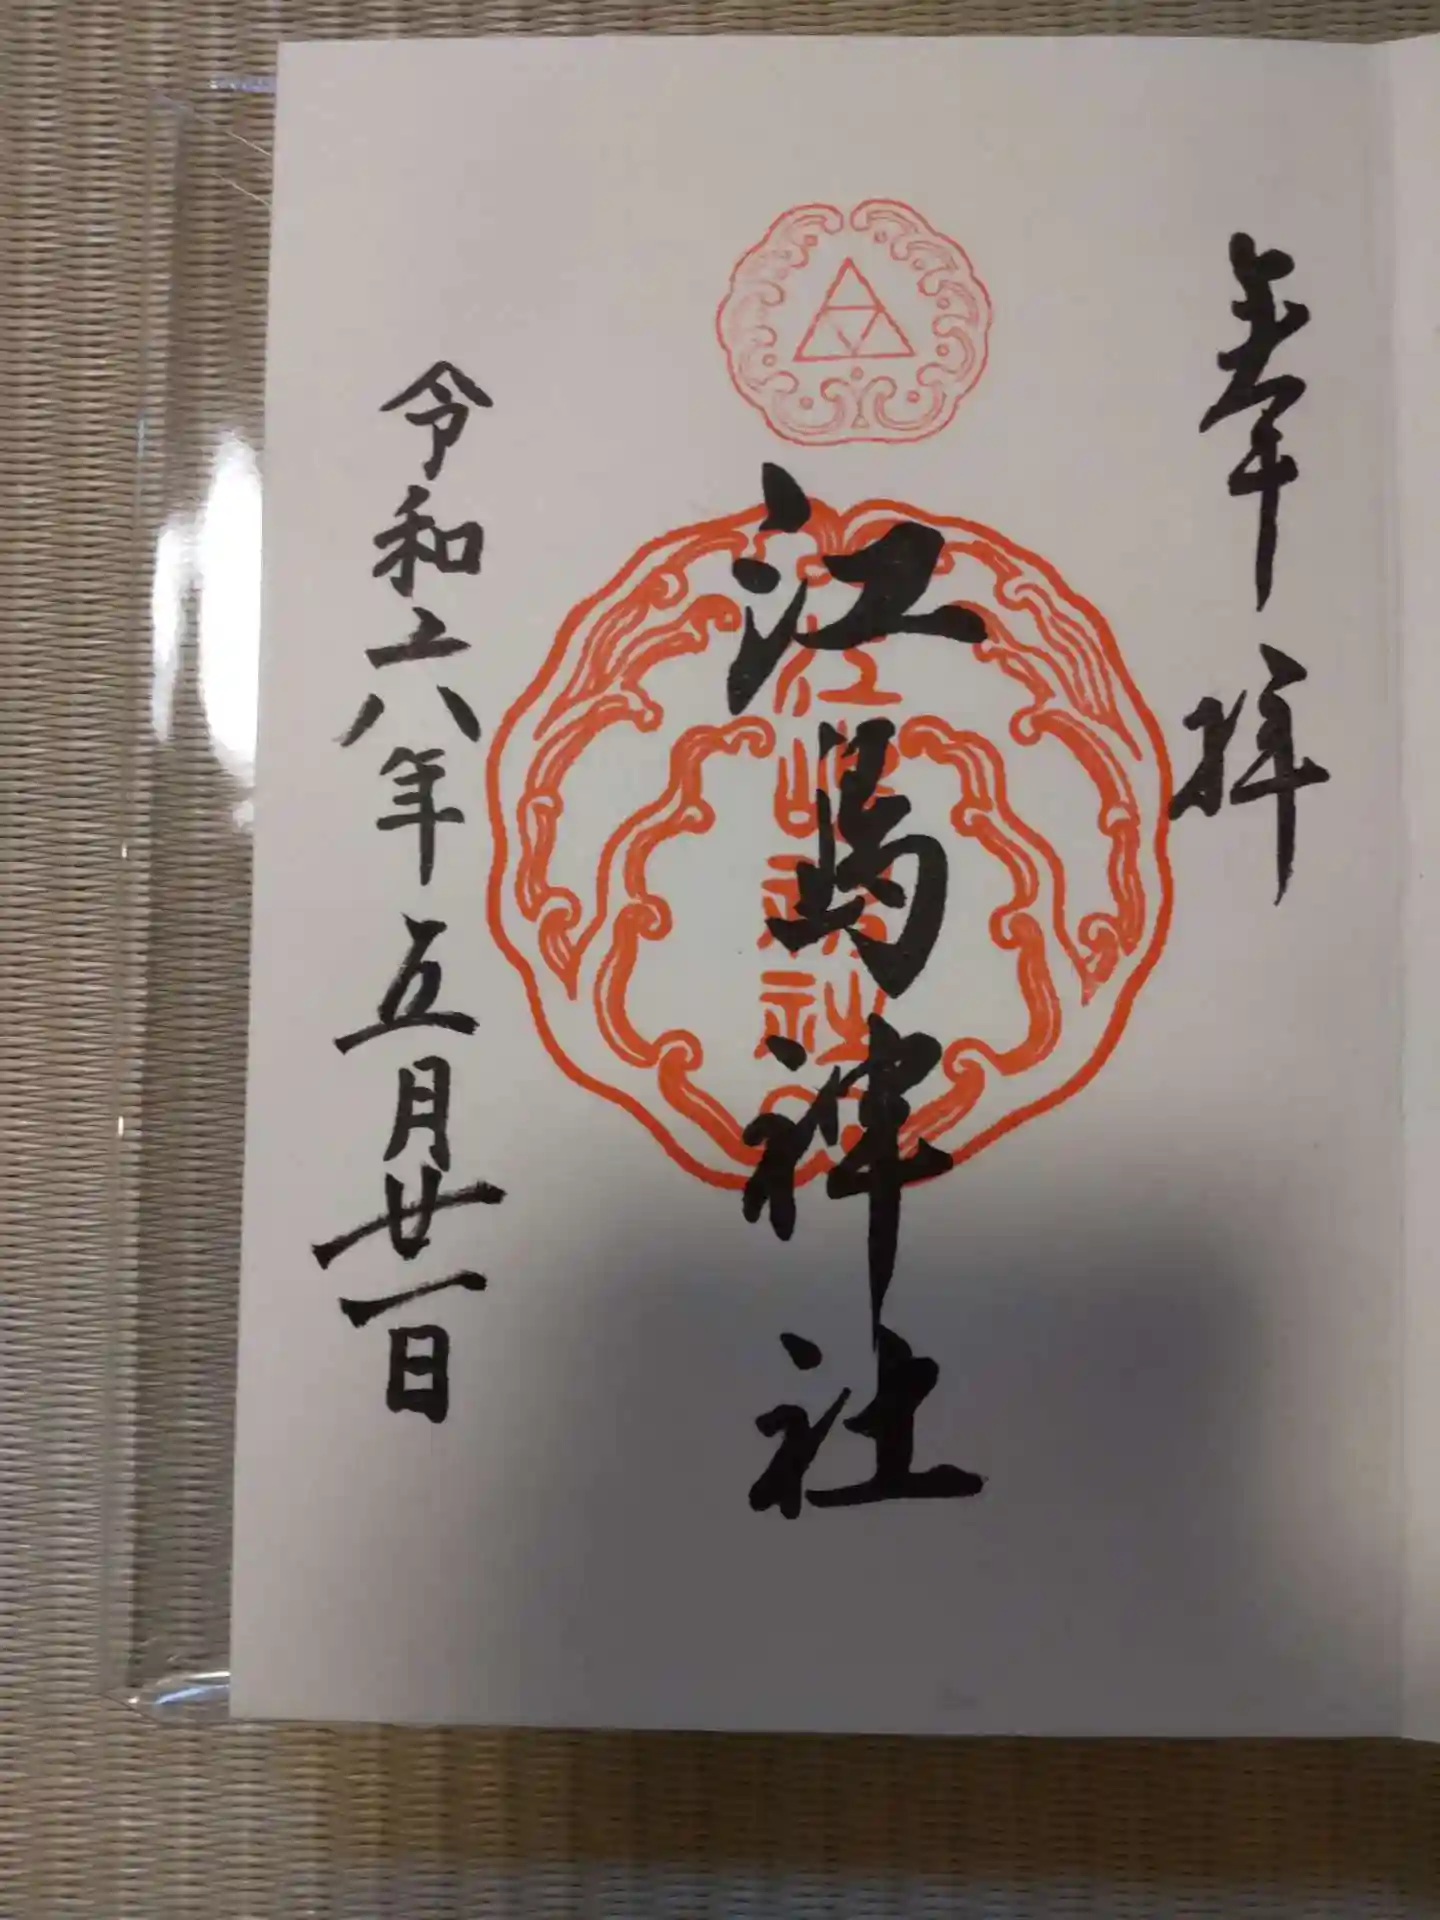 奉拝
江島神社
令和六年五月廿一日
江島神社